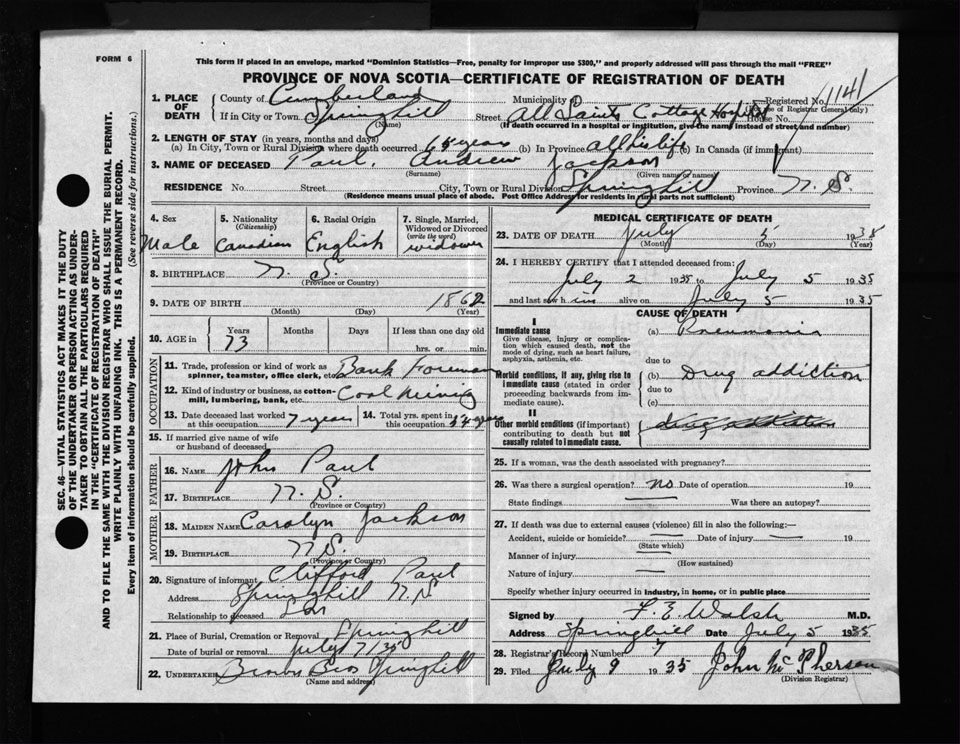 FORM 6
This form if placed in an envelope, marked "Dominion Statistics—Free, penalty for improper use $300," and properly addressed will pass through the mail "FREE"
PROVINCE OF NOVA SCOTIA—CERTIFICATE OF REGISTRATION OF DEATH
SEC. 46—VITAL STATISTICS ACT MAKES IT THE DUTY
OF THE UNDERTAKER OR PERSON ACTING AS UNDER-
TAKER TO OBTAIN ALL THE PARTICULARS REQUIRED
IN THE "CERTIFICATE OF REGISTRATION OF DEATH"
AND TO FILE THE SAME WITH THE DIVISION REGISTRAR WHO SHALL ISSUE THE BURIAL PERMIT.
WRITE PLAINLY WITH UNFADING INK. THIS IS A PERMANENT RECORD.
Every item of information should be carefully supplied. (See reverse side for instructions.)
1. PLACE OF DEATH
County of Cumberland Municipality Registered No. 1141
(Use of Registrar General only)
If in City or Town Springhill Street All Saints Cottage Hospital House No.
(Name) (If death occurred in a hospital or institution, give the name instead of street and number)
2. LENGTH OF STAY (in years, months and days)
(a) In City, Town or Rural Division where death occurred 65 years (b) In Province all his life (c) In Canada (if immigrant)
3. NAME OF DECEASED Paul, Andrew Jackson
(Surname) (Given name or names)
RESIDENCE No. Street City, Town or Rural Division Springhill Province N. S.
(Residence means usual place of abode. Post Office Address for residents in rural parts not sufficient)
4. Sex Male
5. Nationality (Citizenship) Canadian
6. Racial Origin English
7. Single, Married, Widowed or Divorced (write the word) widower
8. BIRTHPLACE N. S.
(Province or Country)
9. DATE OF BIRTH 1862
(Month) (Day) (Year)
10. AGE in Years Months Days If less than one day old
73 hrs. or min.
OCCUPATION
11. Trade, profession or kind of work as spinner, teamster, office clerk, etc. Bank Foreman
12. Kind of industry or business, as cotton-mill, lumbering, bank, etc. Coal Mining
13. Date deceased last worked at this occupation 7 years
14. Total yrs. spent in this occupation 54 years
15. If married give name of wife or husband of deceased
FATHER
16. NAME John Paul
17. BIRTHPLACE N. S.
(Province or Country)
MOTHER
18. MAIDEN NAME Carolyn Jackson
19. BIRTHPLACE N. S.
(Province or Country)
20. Signature of informant Clifford Paul
Address Springhill N. S
Relationship to deceased Son
21. Place of Burial, Cremation or Removal Springhill
Date of burial or removal July 7/35
22. UNDERTAKER Bros Springhill
(Name and address)
MEDICAL CERTIFICATE OF DEATH
23. DATE OF DEATH July 5 1935
(Month) (Day) (Year)
24. I HEREBY CERTIFY that I attended deceased from:
July 2 1935 to July 5 1935
and last saw him alive on July 5 1935
CAUSE OF DEATH
I
Immediate cause (a) Pneumonia
Give disease, injury or complica-
tion which caused death, not the
mode of dying, such as heart failure,
asphyxia, asthenia, etc. due to
Morbid conditions, if any, giving rise to
immediate cause (stated in order
proceeding backwards from im-
mediate cause). (b) Drug addiction
due to
(c)
II
Other morbid conditions (if important)
contributing to death but not
causally related to immediate cause. drug addiction
25. If a woman, was the death associated with pregnancy?
26. Was there a surgical operation? no Date of operation 19
State findings Was there an autopsy?
27. If death was due to external causes (violence) fill in also the following:—
Accident, suicide or homicide? Date of injury 19
(State which)
Manner of injury
(How sustained)
Nature of injury
Specify whether injury occurred in industry, in home, or in public place
Signed by F. E. Walsh M.D.
Address Springhill Date July 5 1935
28. Registrar's Record Number 7
29. Filed July 9 1935 John McPherson
(Division Registrar)